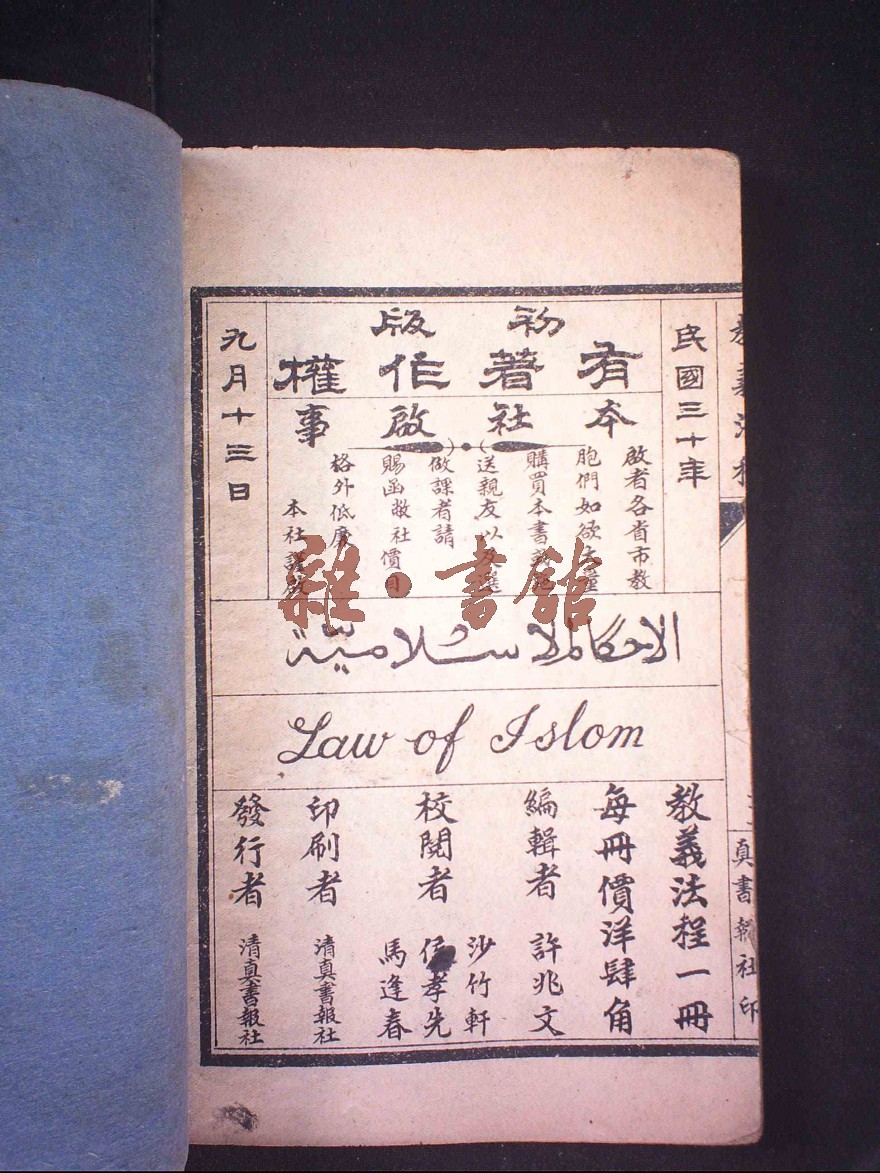 教義法程
民國三十年
初版
有著作權
本社啟事
啟者各省市教
胞們如欲
購買本書
送親友以及選
做課者請
賜函敝社價目
格外低廉
本社謹啟
九月十三日
雜·書館
الاحكام الاسلامية
Law of Islom
教義法程一冊
每冊價洋肆角
編輯者 許兆文
校閱者 沙竹軒
孝先
馬逢春
印刷者 清真書報社
發行者 清真書報社
真書報社印